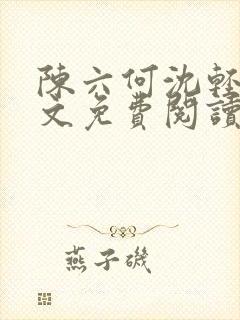 陳六何沈輕
文免費閱讀
燕子磯